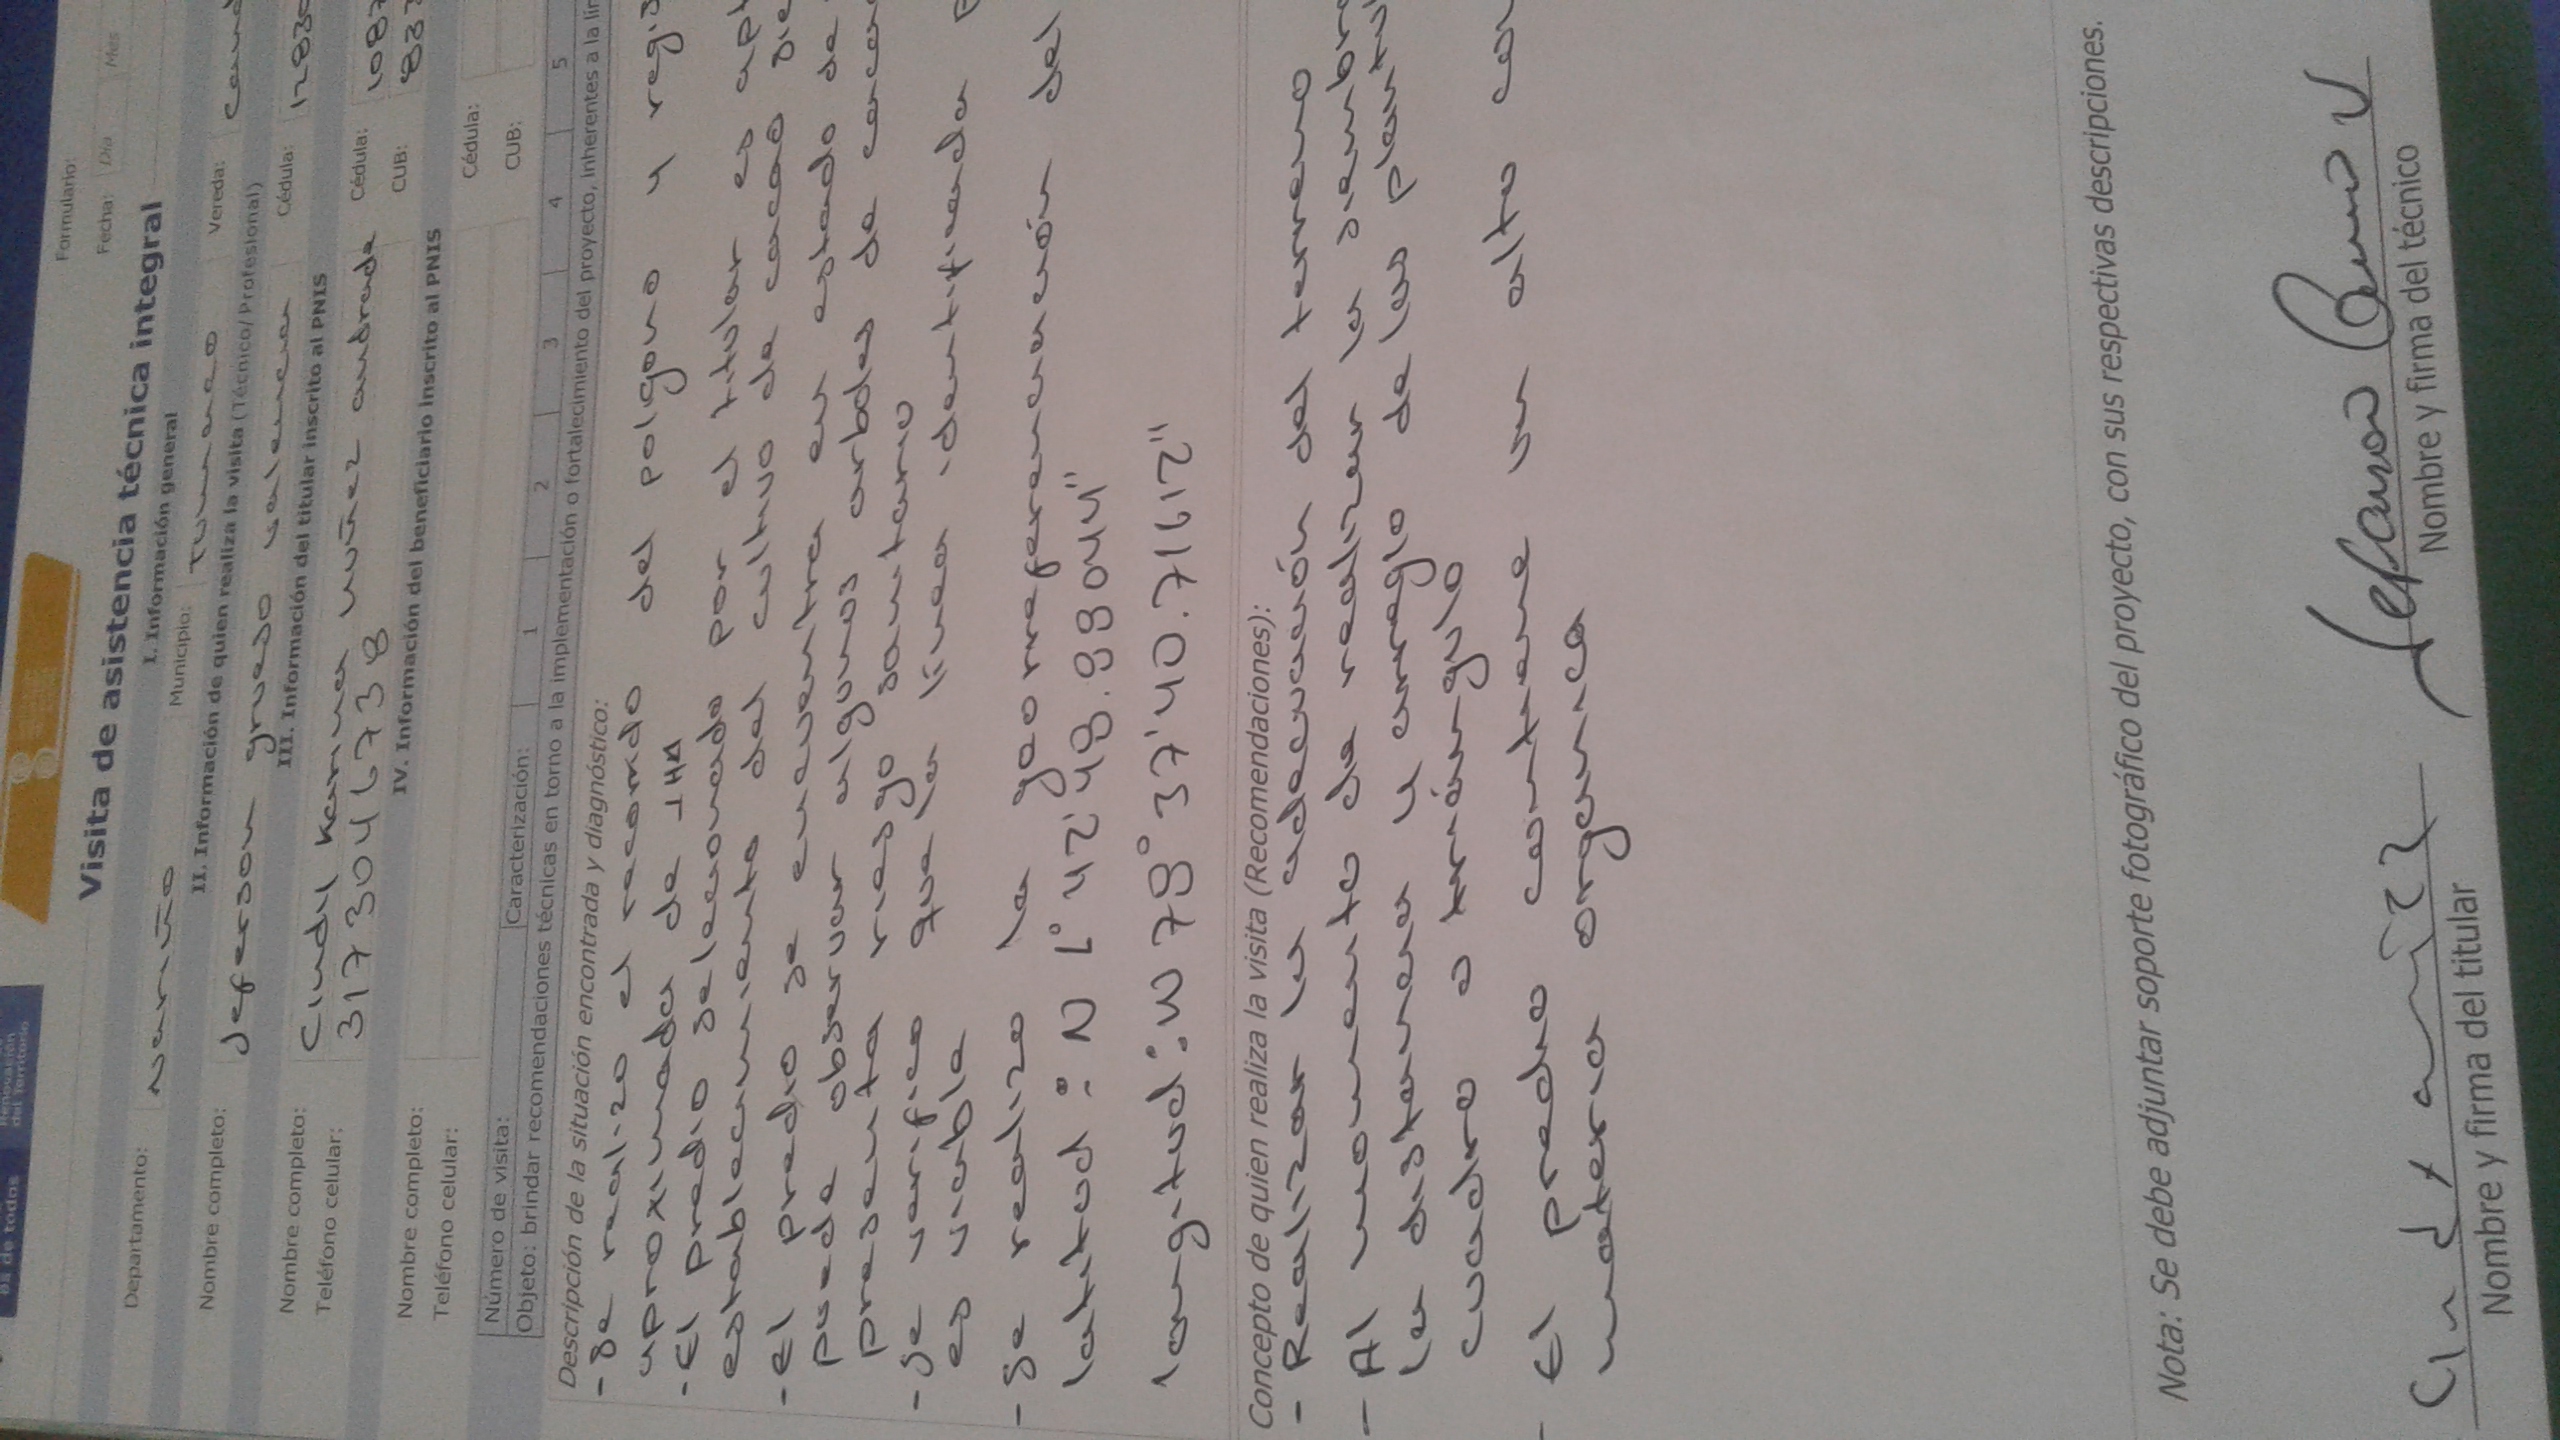 os de todos
Renovación
del Territorio
Formulario:
Visita de asistencia técnica integral
Fecha: Día Mes
I. Información general
Departamento: Nariño Municipio: Tumaco Vereda:
II. Información de quien realiza la visita (Técnico/Profesional)
Nombre completo: Jeferson grueso valencia Cédula: 1283
III. Información del titular inscrito al PNIS
Nombre completo: Cindy Karina muñez andrade Cédula: 1087
Teléfono celular: 3173046738 CUB: 833
IV. Información del beneficiario inscrito al PNIS
Nombre completo: Cédula:
Teléfono celular: CUB:
Número de visita: Caracterización: 1 2 3 4 5
Objeto: brindar recomendaciones técnicas en torno a la implementación o fortalecimiento del proyecto, inherentes a la lín
Descripción de la situación encontrada y diagnóstico:
- Se realizo el recorrido del poligono y regis
aproximada de 1HA
- El predio seleccionado por el titular es apt
establecimiento del cultivo de cacao sie
- El predio se encuentra en estado de
puede observar algunos arboles de
presenta riesgo sanitario
- Se verifico que la linea identificada p
es viable
- Se realizo la georreferenciación del
latitud: N 1° 42' 48.99044"
longitud: W 78° 37' 40.71612"
Concepto de quien realiza la visita (Recomendaciones):
- Realizar la adecuación del terreno
- Al momento de realizar la siembra
la distancia y arreglo de las plantul
cuadro o triángulo
- El predio contiene un alto con
materia organica
Nota: Se debe adjuntar soporte fotográfico del proyecto, con sus respectivas descripciones.
Nombre y firma del titular Nombre y firma del técnico